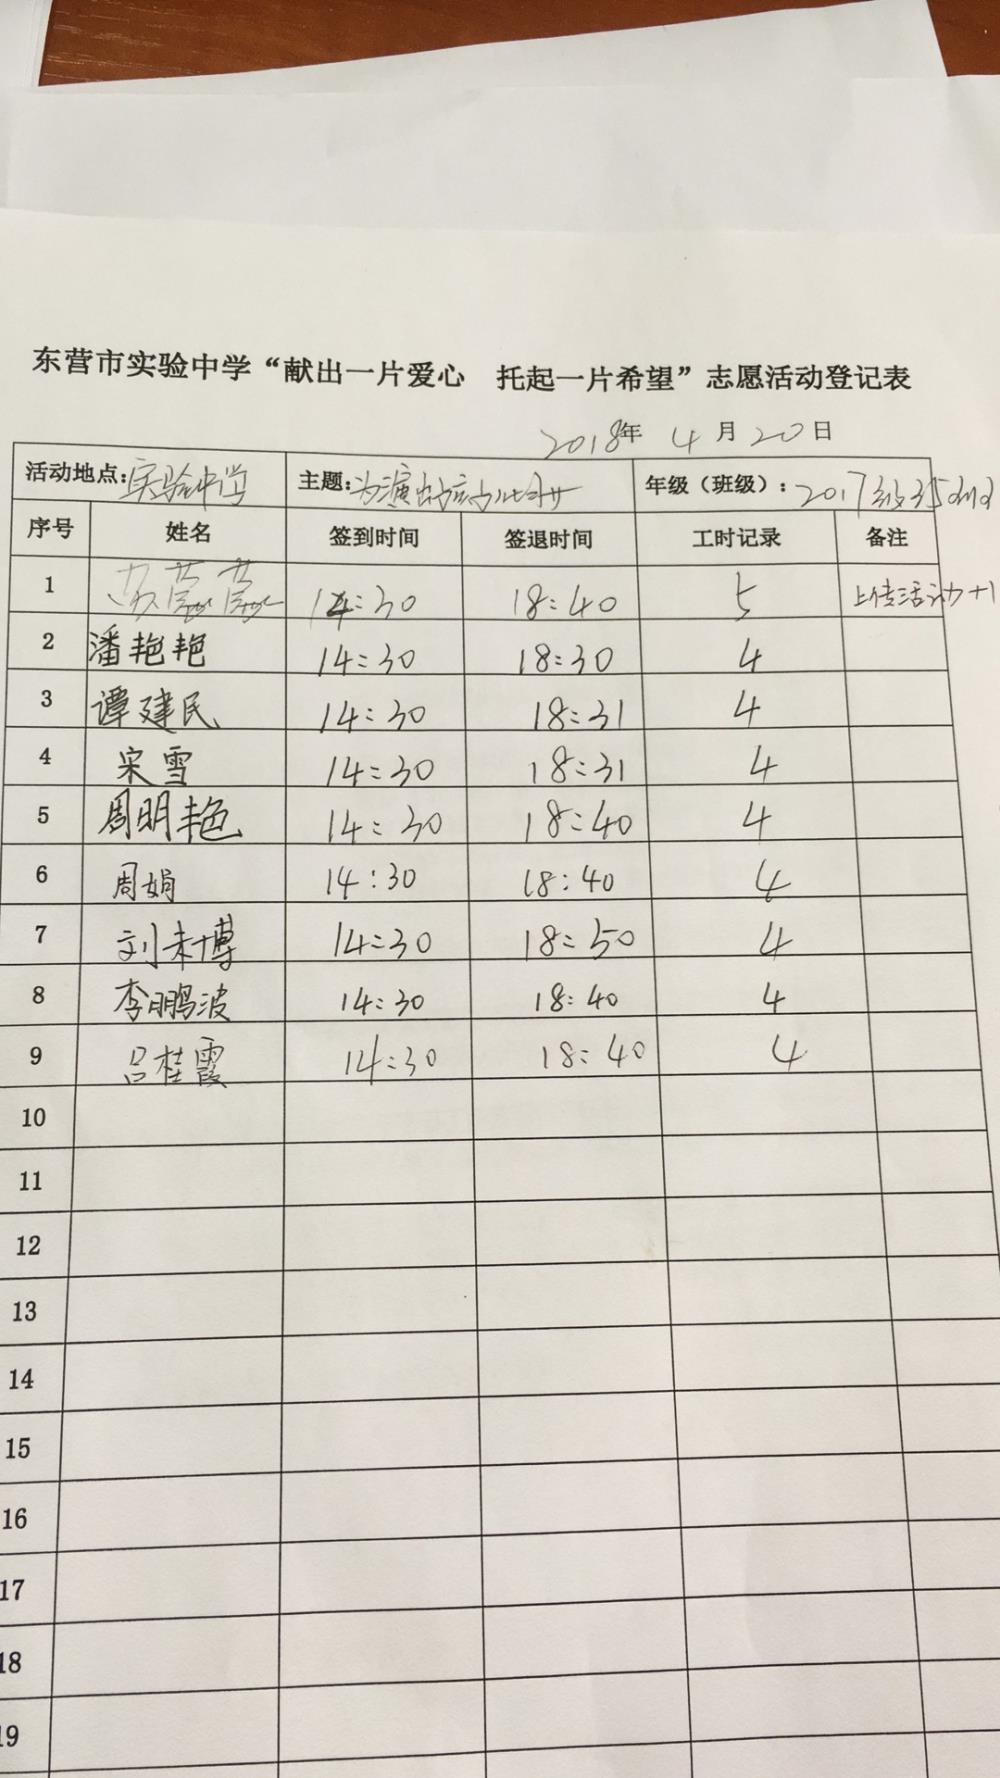 东营市实验中学“献出一片爱心 托起一片希望”志愿活动登记表
2018年 4月20日
活动地点:实验中学 主题:为演出 年级（班级）: 2017级35
序号 姓名 签到时间 签退时间 工时记录 备注
1 苏营营 14:30 18:40 5 上传活动+1
2 潘艳艳 14:30 18:30 4
3 谭建民 14:30 18:31 4
4 宋雪 14:30 18:31 4
5 周明艳 14:30 18:40 4
6 周娟 14:30 18:40 4
7 刘未博 14:30 18:50 4
8 李鹏波 14:30 18:40 4
9 吕桂霞 14:30 18:40 4
10
11
12
13
14
15
16
17
18
19